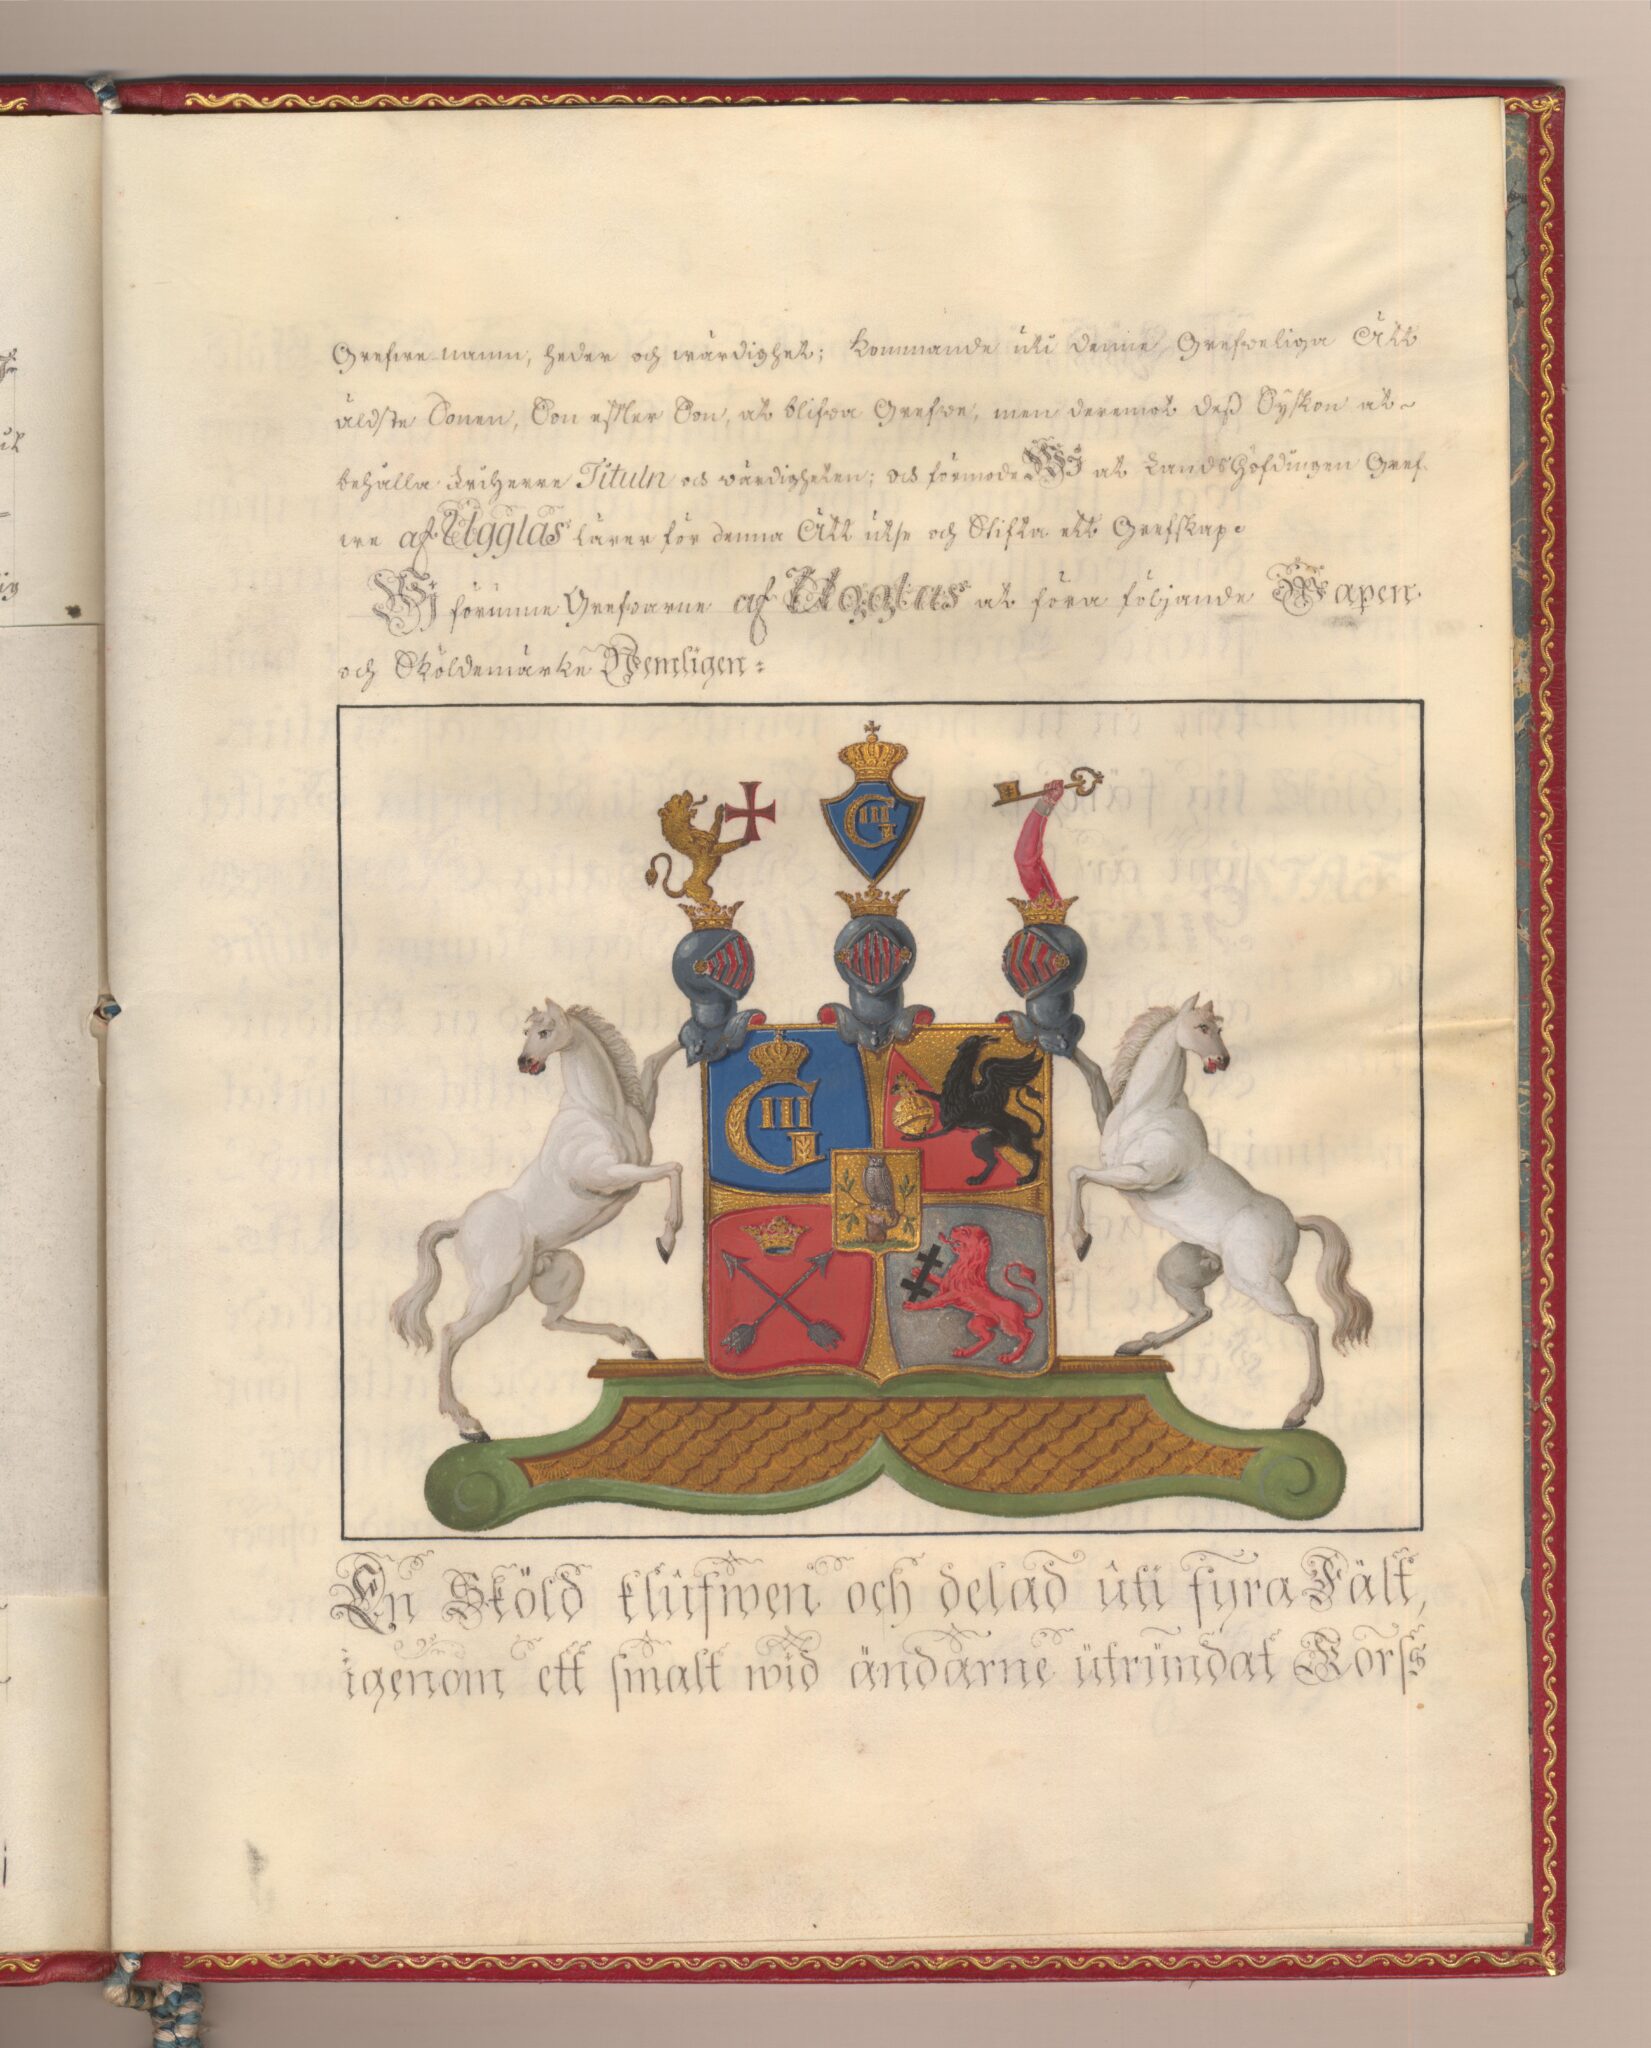 Grefwe namn, heder och wärdighet; kommande uti denne Grefweliga Ätt
äldste Sonen, Son efter Son, at blifwa Grefwe, men deremot deß Syskon at
behålla FriHerre Tituln och wärdigheten; och förmode Wi at LandsHöfdingen Gref-
we af Ugglas lärer för denna Ätt utse och Stifta ett Grefskap.
Wi förunne Grefwarne af Ugglas at föra följande Wapen
och Sköldemärke Nemligen:
G III
G III
En Sköld klufwen och delad uti fyra Fält,
igenom ett smalt wid ändarne utrundat Corss